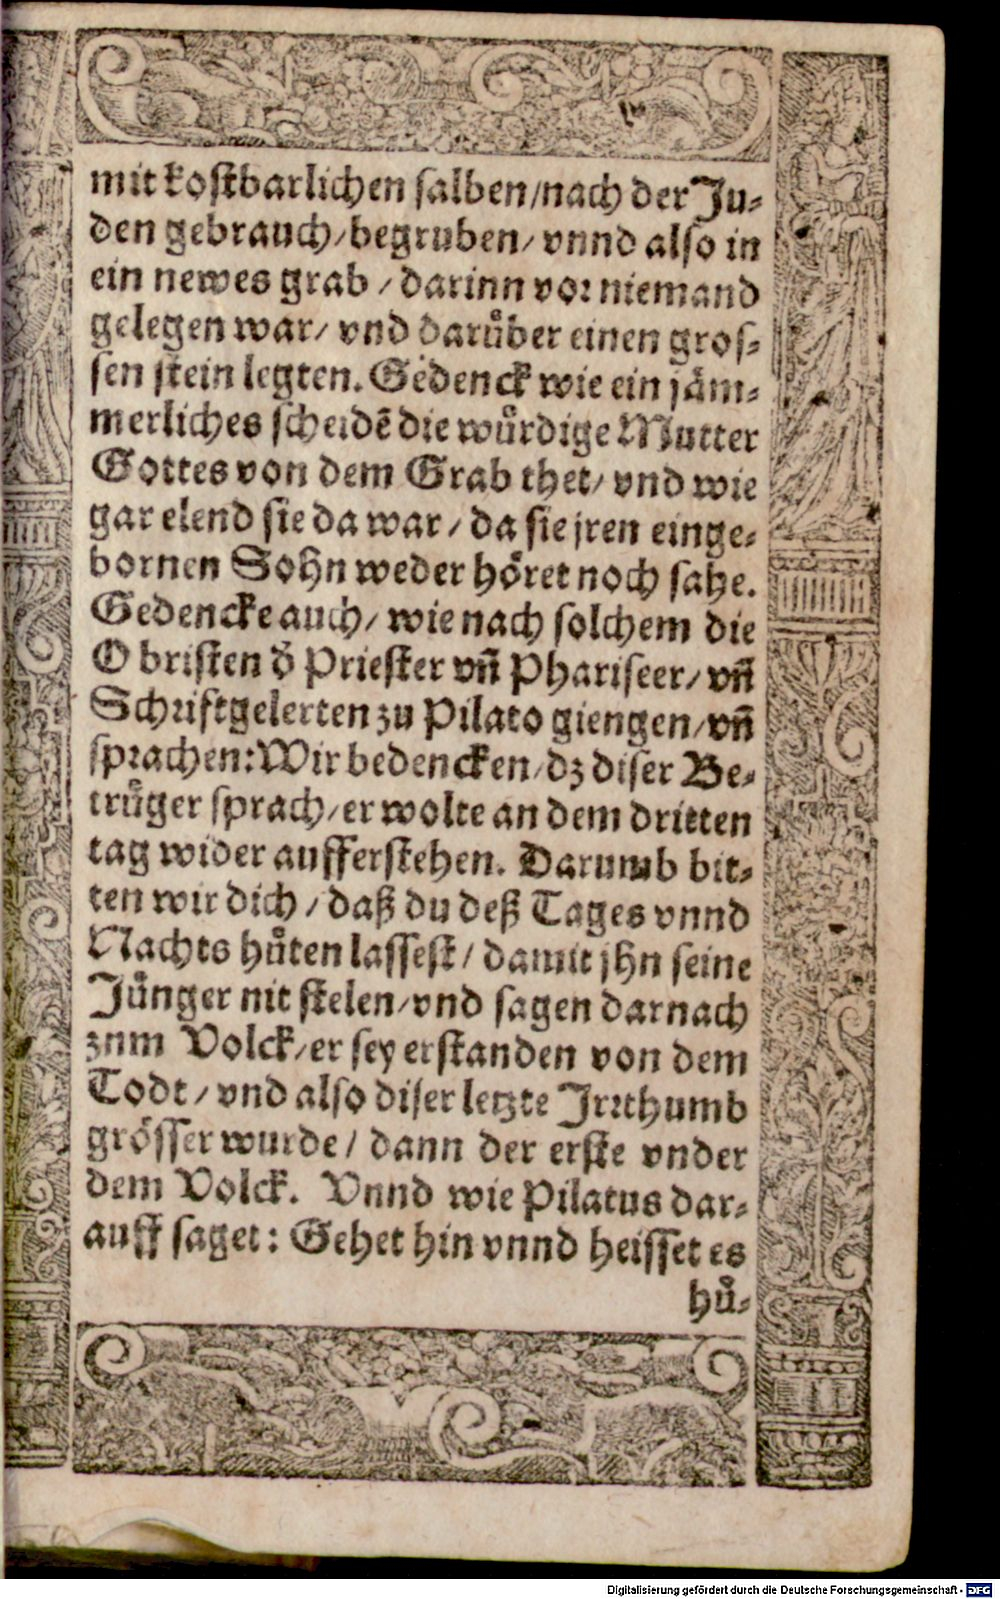 mit koſtbarlichen ſalben/nach der Ju⸗
den gebrauch/begruben/ vnnd alſo in
ein newes grab / darinn vor niemand
gelegen war/ vnd daruͤber einen groſ⸗
ſen ſtein legten. Gedenck wie ein jaͤm⸗
merliches ſcheidē die wuͤrdige Mutter
Gottes von dem Grab thet/ vnd wie
gar elend ſie da war / da ſie jren einge⸗
bornen Sohn weder hoͤret noch ſahe.
Gedencke auch/ wie nach ſolchem die
Obriſten d̓ Prieſter vñ Phariſeer/ vñ
Schriftgelerten zu Pilato giengen/vñ
ſprachen:Wir bedencken/dz diſer Be⸗
truͤger ſprach/er wolte an dem dritten
tag wider aufferſtehen. Darumb bit⸗
ten wir dich / daß du deß Tages vnnd
Nachts huͤten laſſeſt / damit jhn ſeine
Juͤnger nit ſtelen/vnd ſagen darnach
znm Volck/er ſey erſtanden von dem
Todt / vnd alſo diſer letzte Irrthumb
groͤſſer wurde / dann der erſte vnder
dem Volck. Vnnd wie Pilatus dar⸗
auff ſaget: Gehet hin vnnd heiſſet es
huͤ⸗
Digitalisierung gefördert durch die Deutsche Forschungsgemeinschaft - DFG